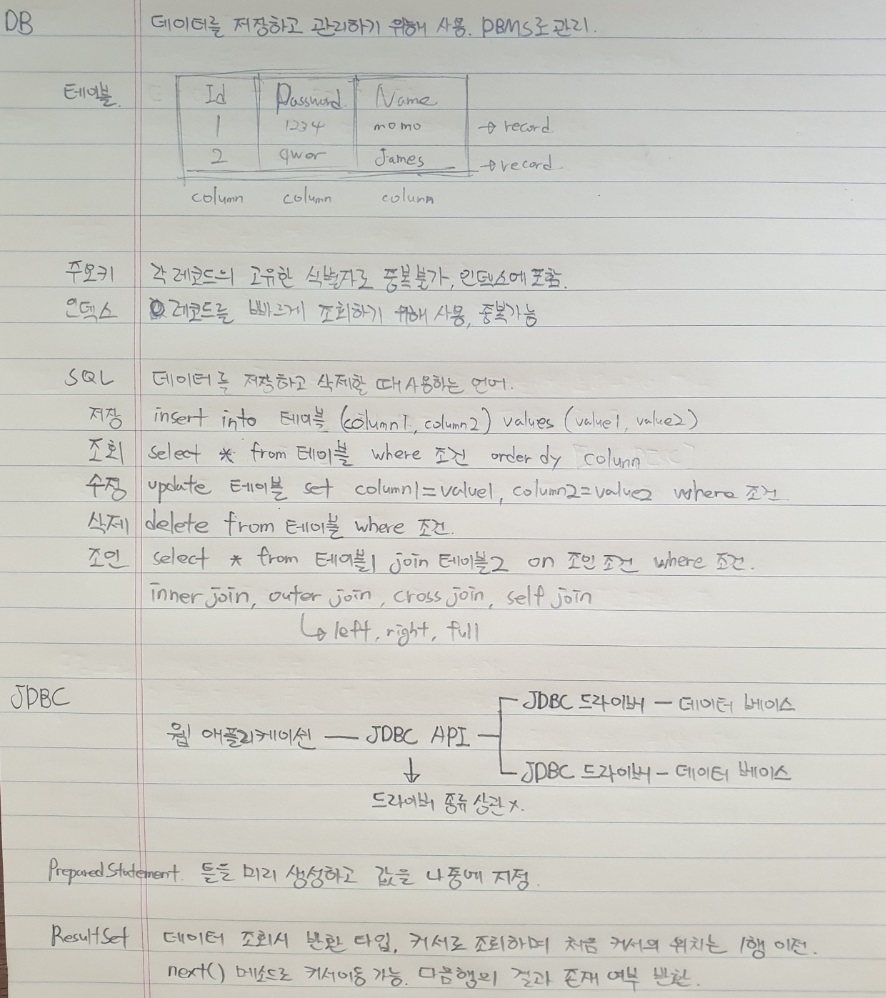 DB 데이터를 저장하고 관리하기 위해 사용. DBMS로 관리.
테이블 Id Password Name
1 1234 momo → record
2 qwer James → record
column column column
주요키 각 레코드의 고유한 식별자로 중복불가, 인덱스에 포함.
인덱스 레코드를 빠르게 조회하기 위해 사용, 중복가능
SQL 데이터를 저장하고 삭제할 때 사용하는 언어.
저장 insert into 테이블 (column1, column2) values (value1, value2)
조회 select * from 테이블 where 조건 order dy column
수정 update 테이블 set column1=value1, column2=value2 where 조건.
삭제 delete from 테이블 where 조건.
조인 select * from 테이블1 join 테이블2 on 조인 조건 where 조건.
inner join, outer join, cross join, self join
↳ left, right, full
JDBC
JDBC 드라이버 — 데이터 베이스
웹 애플리케이션 — JDBC API
JDBC 드라이버 — 데이터 베이스
↓
드라이버 종류 상관 x.
PreparedStatement 틀을 미리 생성하고 값을 나중에 지정.
ResultSet 데이터 조회시 반환 타입, 커서로 조회하며 처음 커서의 위치는 1행 이전.
next() 메소드로 커서이동 가능. 다음행의 결과 존재 여부 반환.